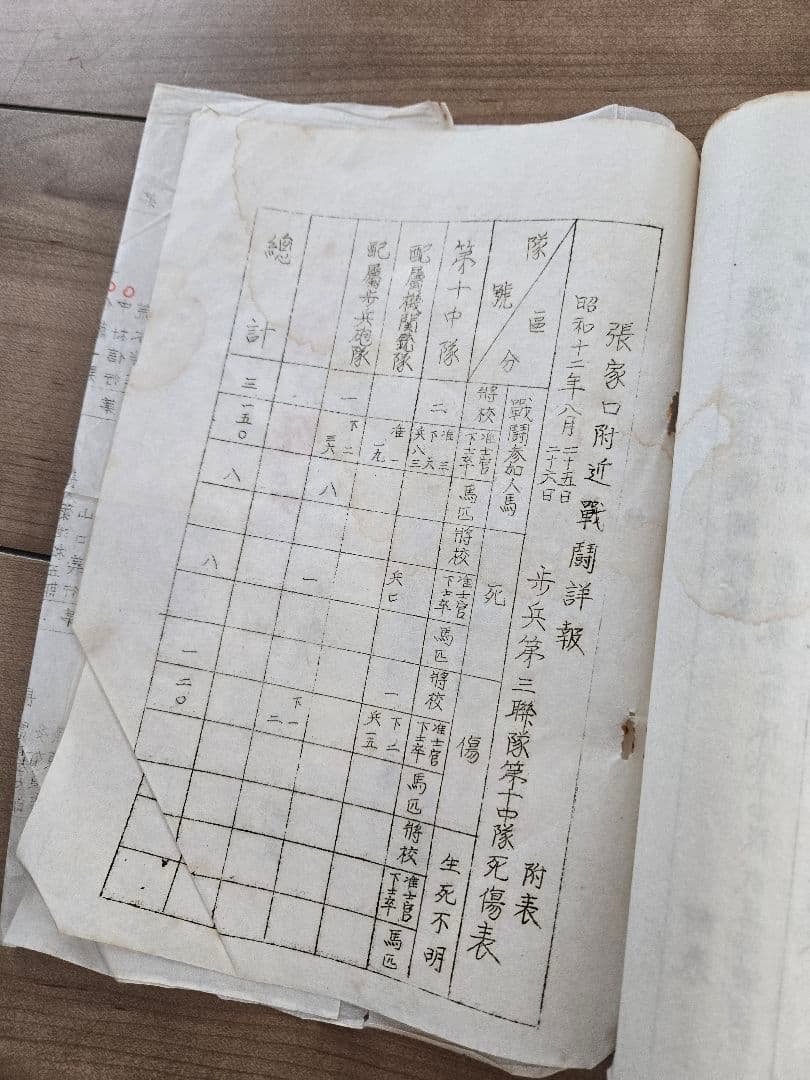 張家口附近戰鬪詳報
附表
昭和十二年八月
二十五日
二十六日
步兵第三聯隊第十中隊死傷表
隊號
區分
戰鬪參加人馬
死
傷
生死不明
將校
准士官
下士卒
馬匹
將校
准士官
下士卒
馬匹
將校
准士官
下士卒
馬匹
將校
准士官
下士卒
馬匹
第十中隊
二
准三
下六
兵八三
兵
一
下二
兵一五
配屬機關銃隊
准一
一九
配屬步兵砲隊
一
下二
三六
八
一
下一
二
總計
三
一五〇
八
八
一
二〇